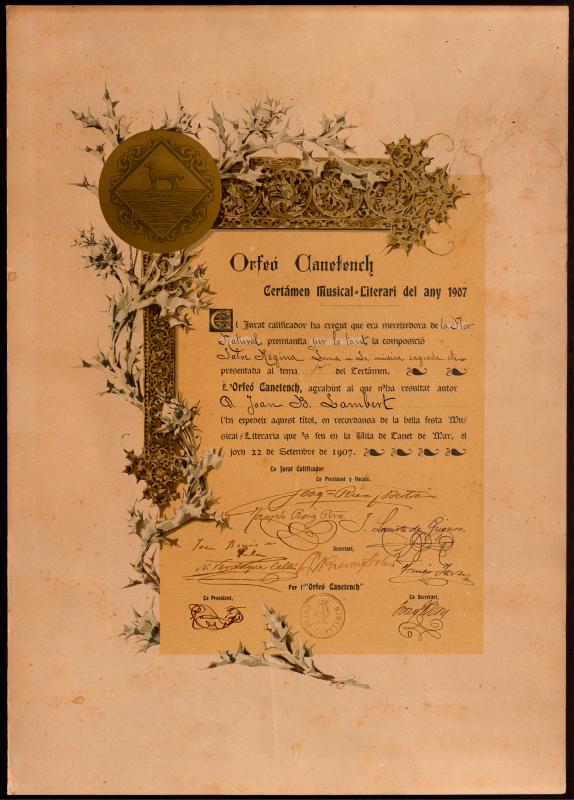 Orfeó Canetench
Certámen Musical-Literari del any 1907
El Jurat calificador ha cregut que era mereixedora de la Flor
Natural premiantla per lo tant la composició
Salve Regina Lema - La música sagrada
presentada al tema 1er del Certámen.
L'Orfeó Canetench, agrahint al que n'ha resultat autor
D. Joan B. Lambert
l'hi expedeix aquest títol, en recordansa de la bella festa Mu-
sical-Literaria que 's feu en la Vila de Canet de Mar, el
jorn 22 de Setembre de 1907.
Lo Jurat Calificador
Lo President y Vocals,
Joseph Roig Pire
Secretari,
Per l'"Orfeó Canetench"
Lo President,
Lo Secretari,